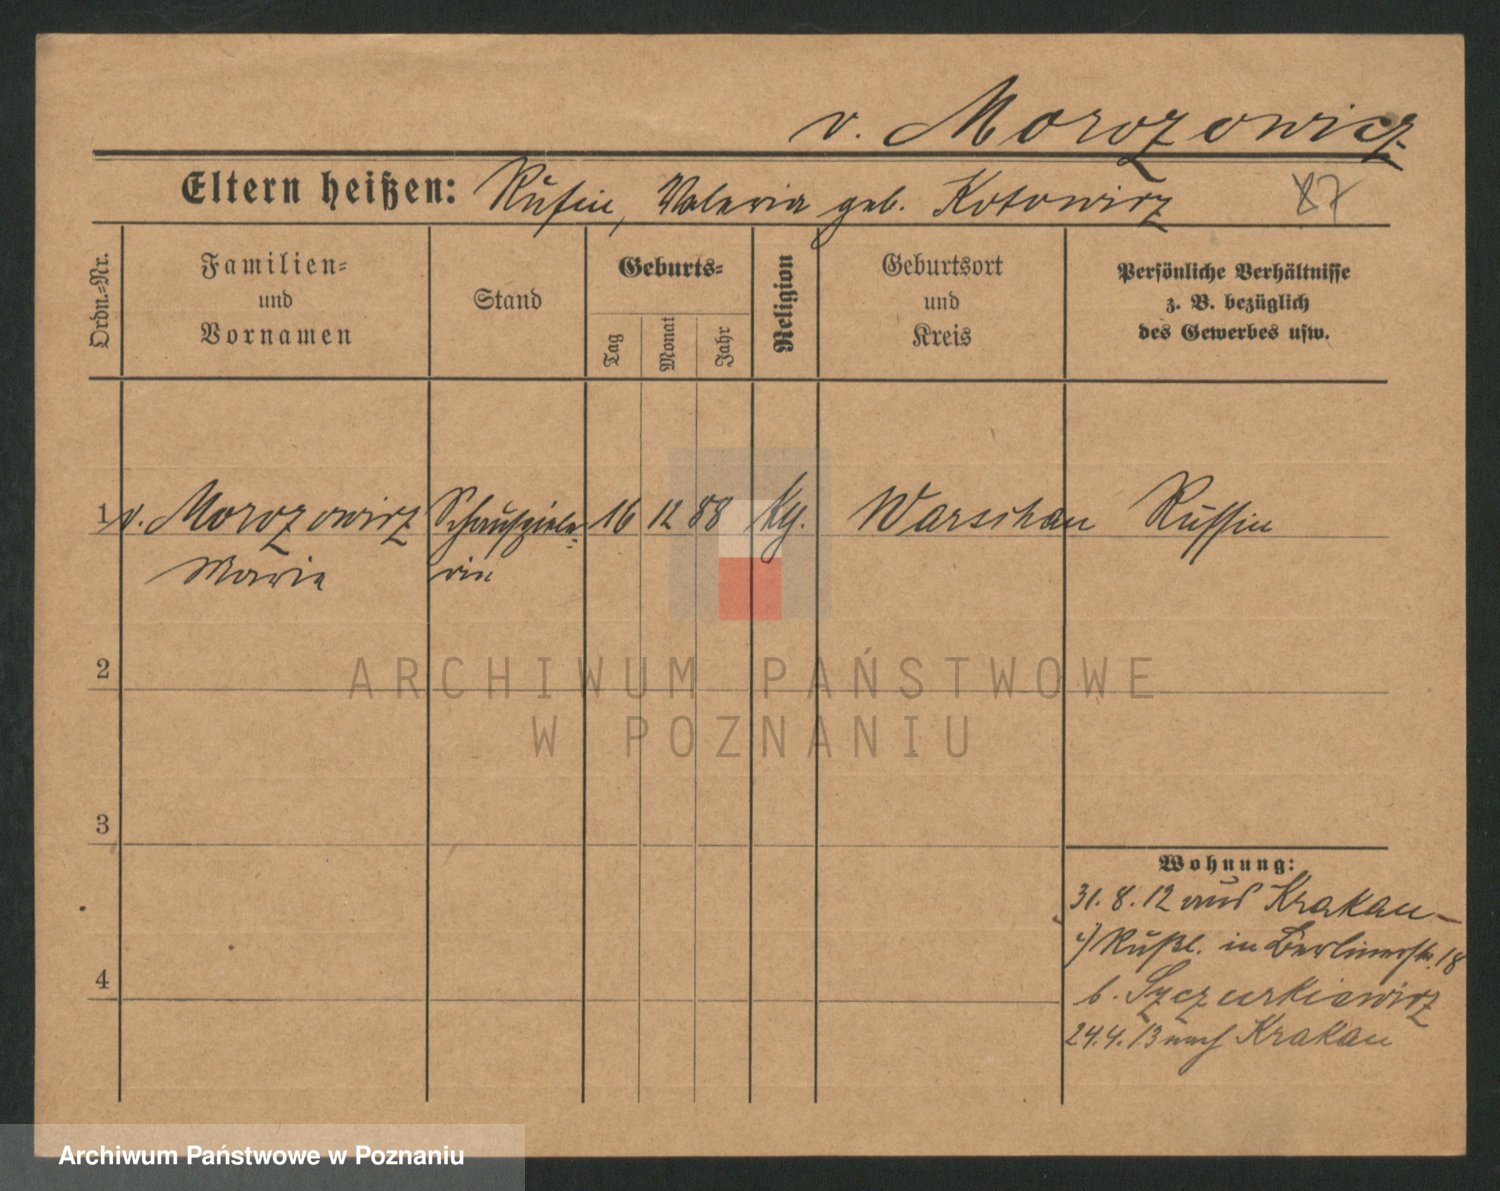 v. Morozowicz
Eltern heißen: Rufin, Valeria geb. Kotowicz
87
Ordn.-Nr.
Familien-
und
Vornamen
Stand
Geburts-
Tag
Monat
Jahr
Religion
Geburtsort
und
Kreis
Persönliche Verhältnisse
z. B. bezüglich
des Gewerbes usw.
1 v. Morozowicz Schauspiele- 16 12 88 kg. Warschau Russin
Marie rin
2
ARCHIWUM PAŃSTWOWE
W POZNANIU
3
4
Wohnung:
31. 8. 12 aus Krakau-
Rußl. in Berlinerstr. 18
b. Szczurkiewicz
24.4.13 nach Krakau
Archiwum Państwowe w Poznaniu